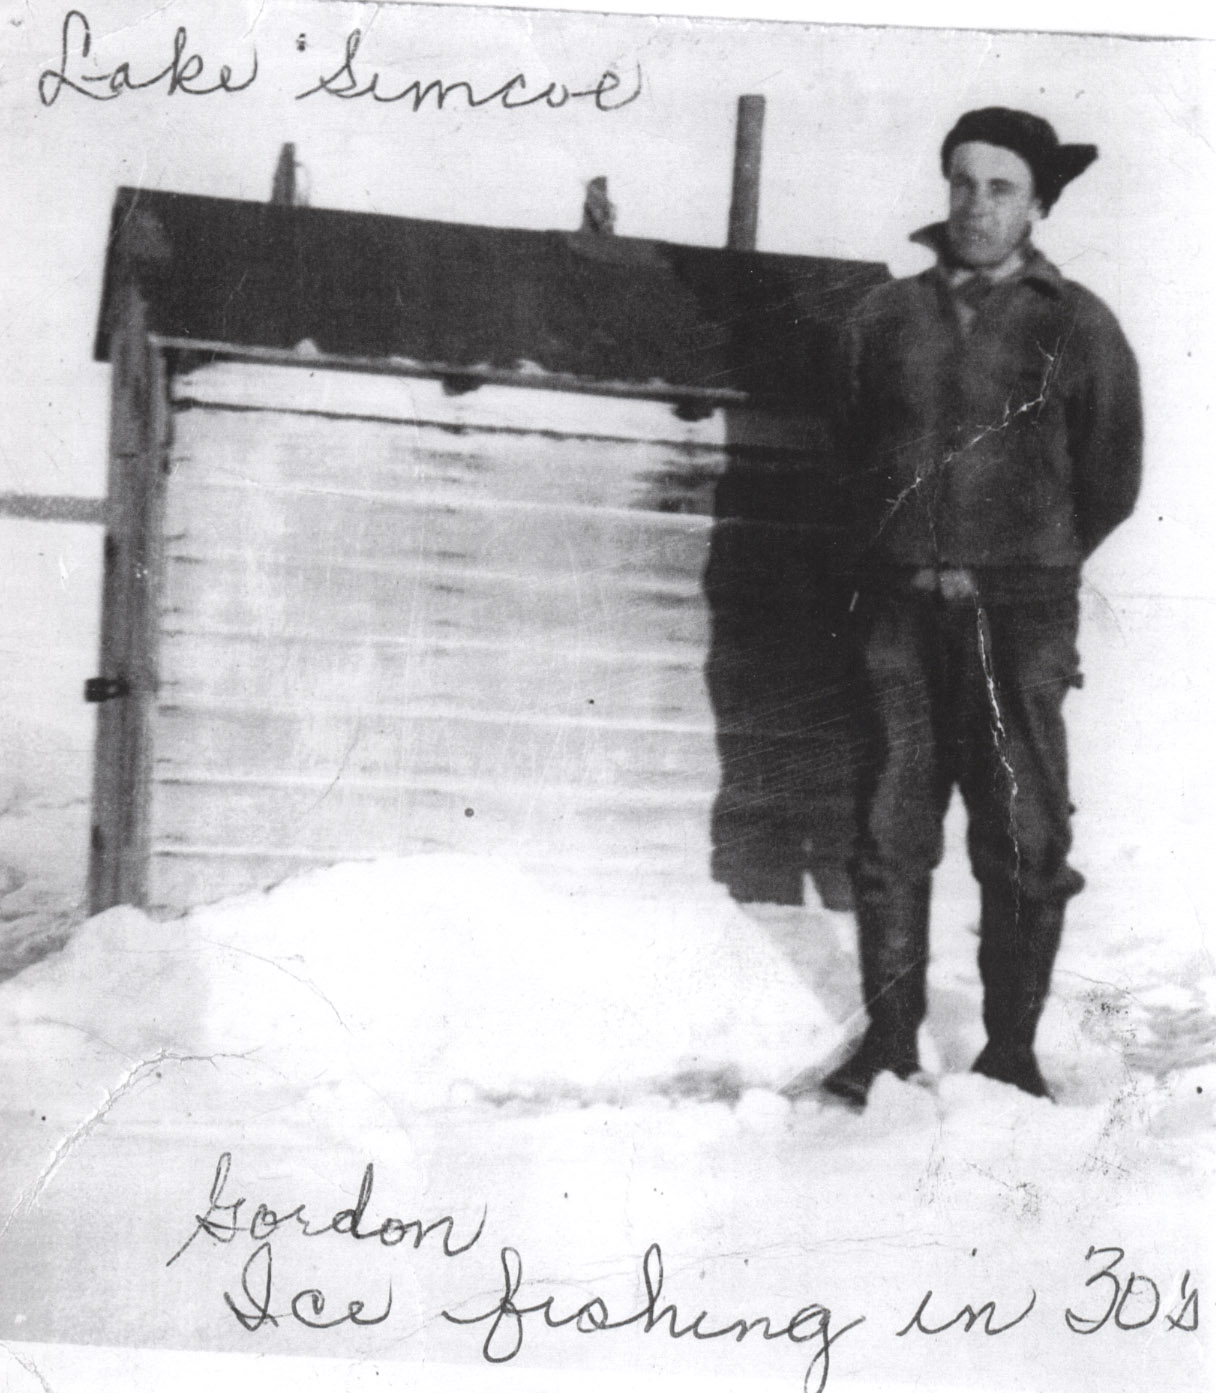 Lake Simcoe
Gordon
Ice fishing in 30's